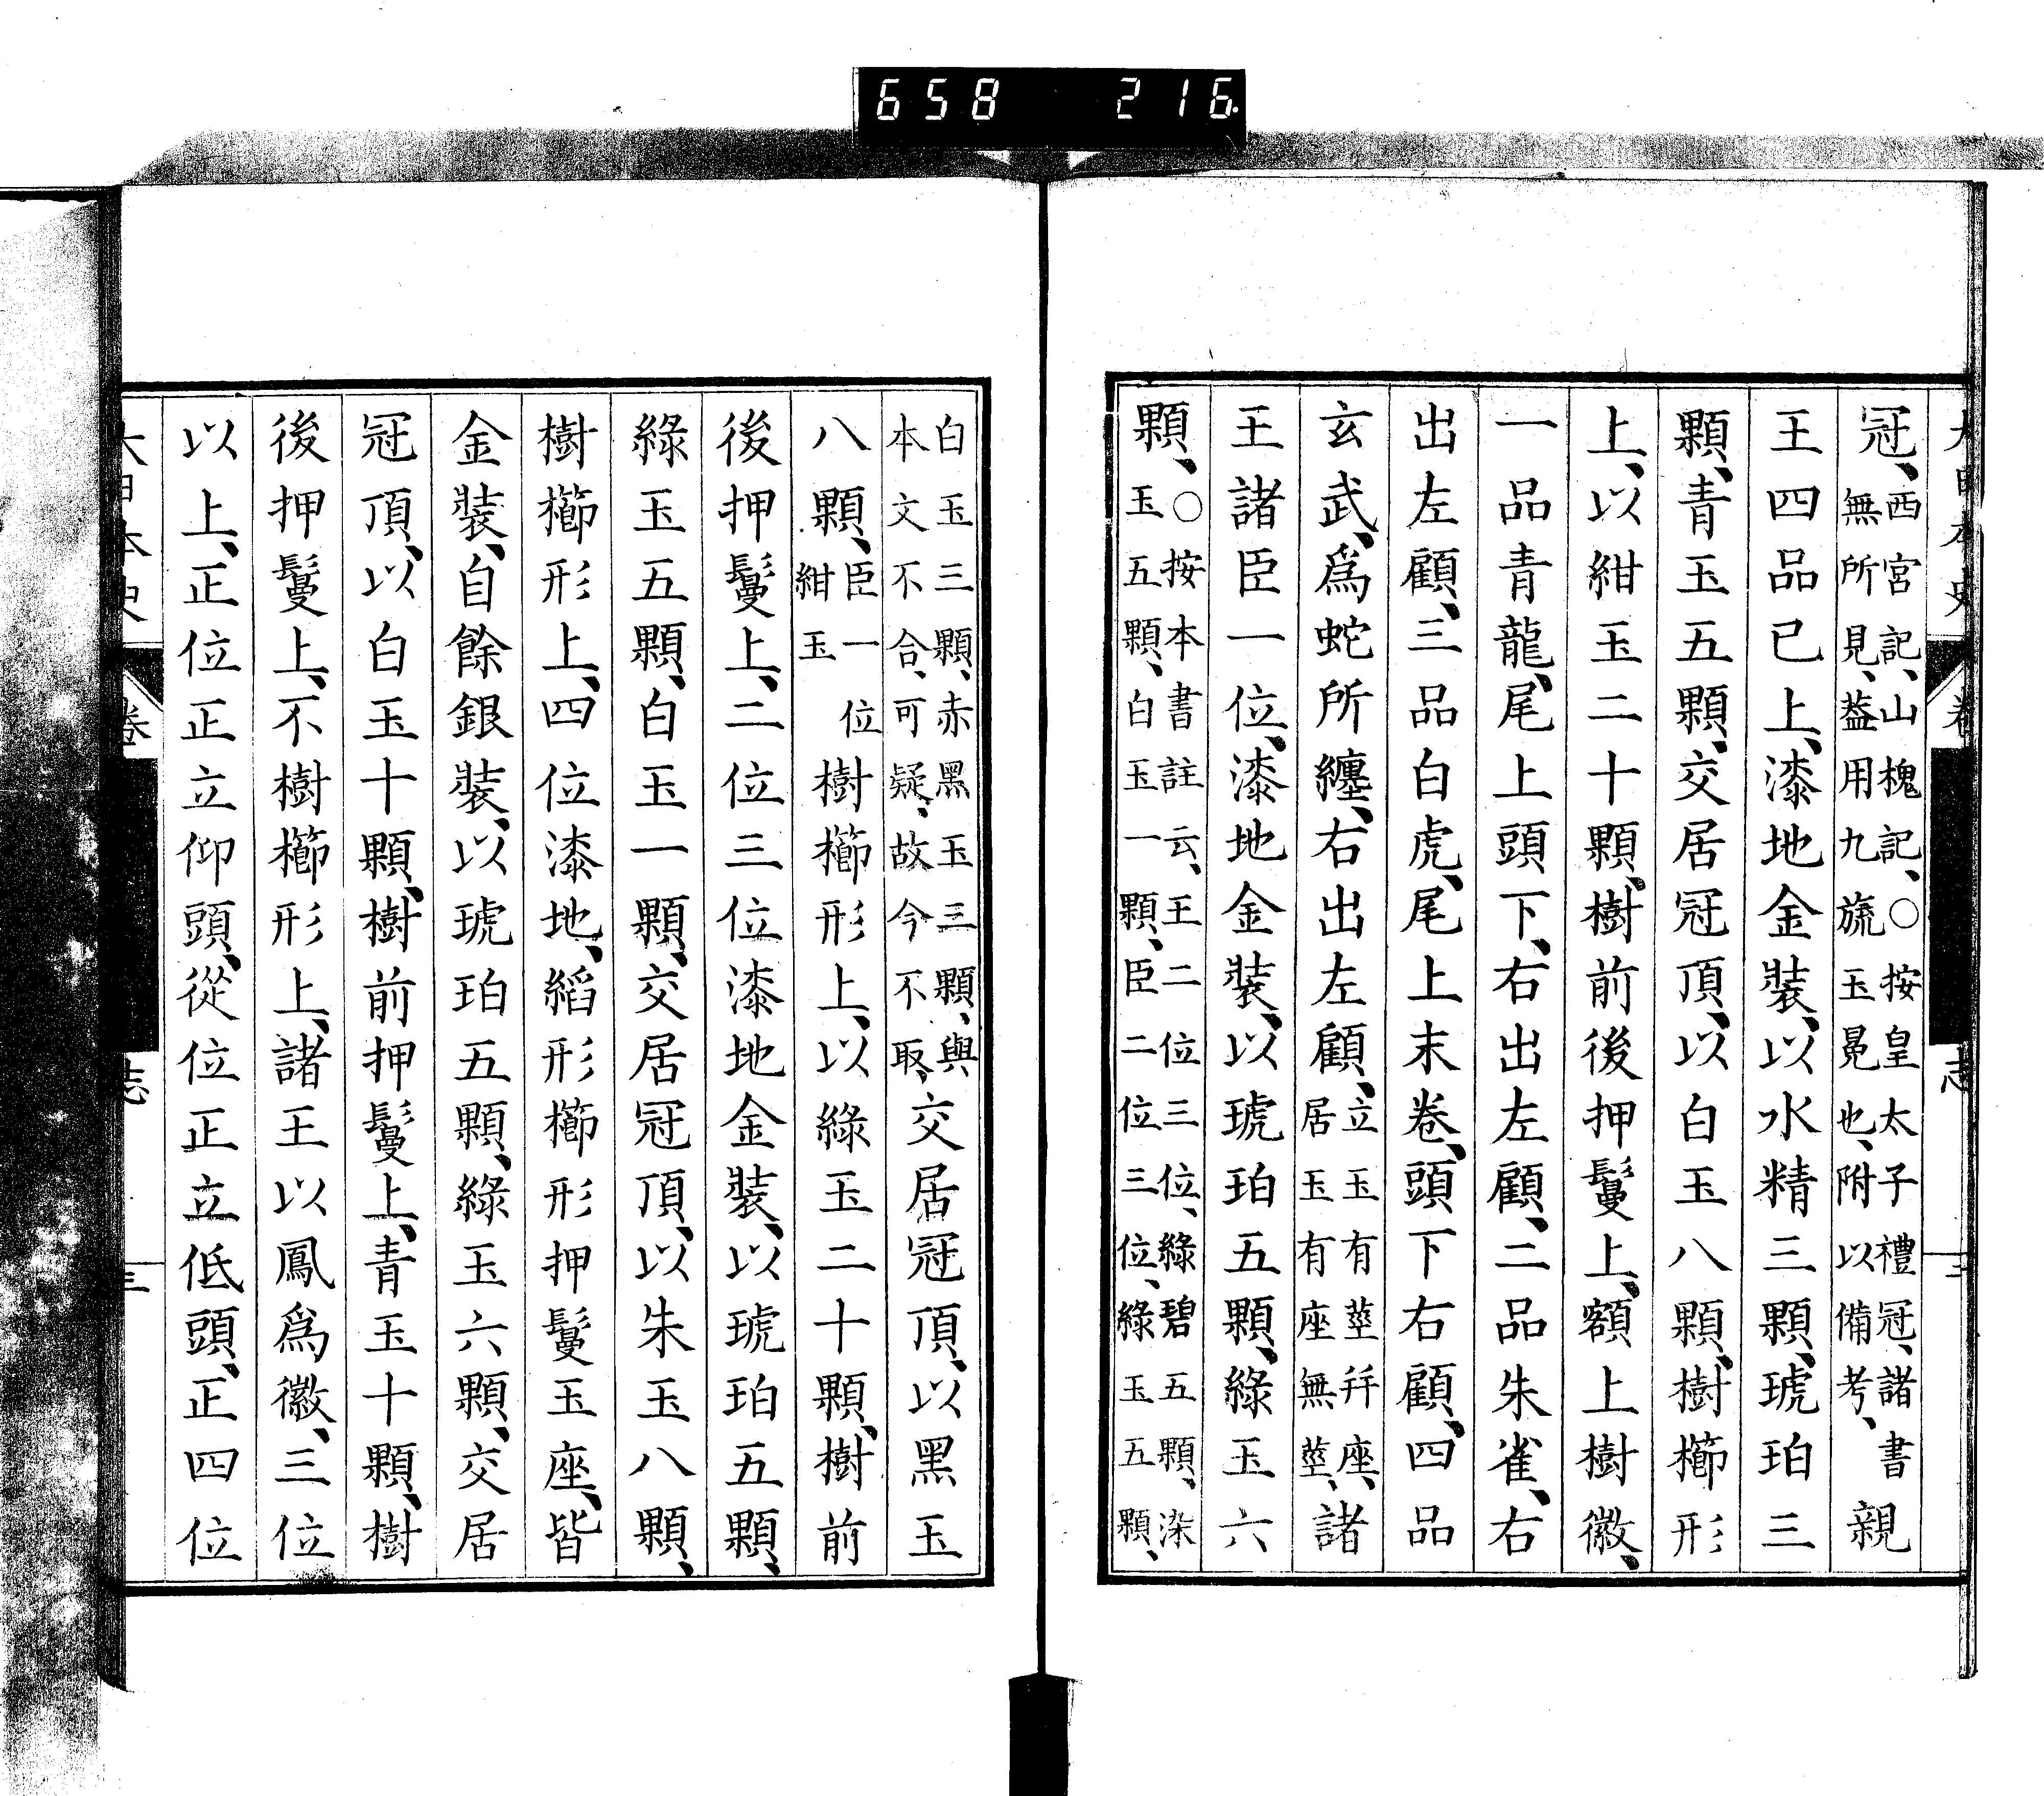 658 216
冠、西宮記、山槐記、○按皇太子禮冠、諸書無所見、蓋用九旒玉冕也、附以備考、親
王四品已上、漆地金裝、以水精三顆、琥珀三
顆、青玉五顆、交居冠頂、以白玉八顆、樹櫛形
上、以紺玉二十顆、樹前後押鬘上、額上樹徽、
一品青龍、尾上頭下、右出左顧、二品朱雀、右
出左顧、三品白虎、尾上末卷、頭下右顧、四品
玄武、爲蛇所纏、右出左顧、立玉有莖幷座、居玉有座無莖、諸
王諸臣一位、漆地金裝、以琥珀五顆、綠玉六
顆、○按本書註云、王二位三位、綠碧五顆、染玉五顆、白玉一顆、臣二位三位、綠玉五顆、
白玉三顆、赤黑玉三顆、與本文不合、可疑、故今不取、交居冠頂、以黑玉
八顆、臣一位紺玉樹櫛形上、以綠玉二十顆、樹前
後押鬘上、二位三位漆地金裝、以琥珀五顆、
綠玉五顆、白玉一顆、交居冠頂、以朱玉八顆、
樹櫛形上、四位漆地、縚形櫛形押鬘玉座、皆
金裝、自餘銀裝、以琥珀五顆、綠玉六顆、交居
冠頂、以白玉十顆、樹前押鬘上、青玉十顆、樹
後押鬘上、不樹櫛形上、諸王以鳳爲徽、三位
以上、正位正立仰頭、從位正立低頭、正四位